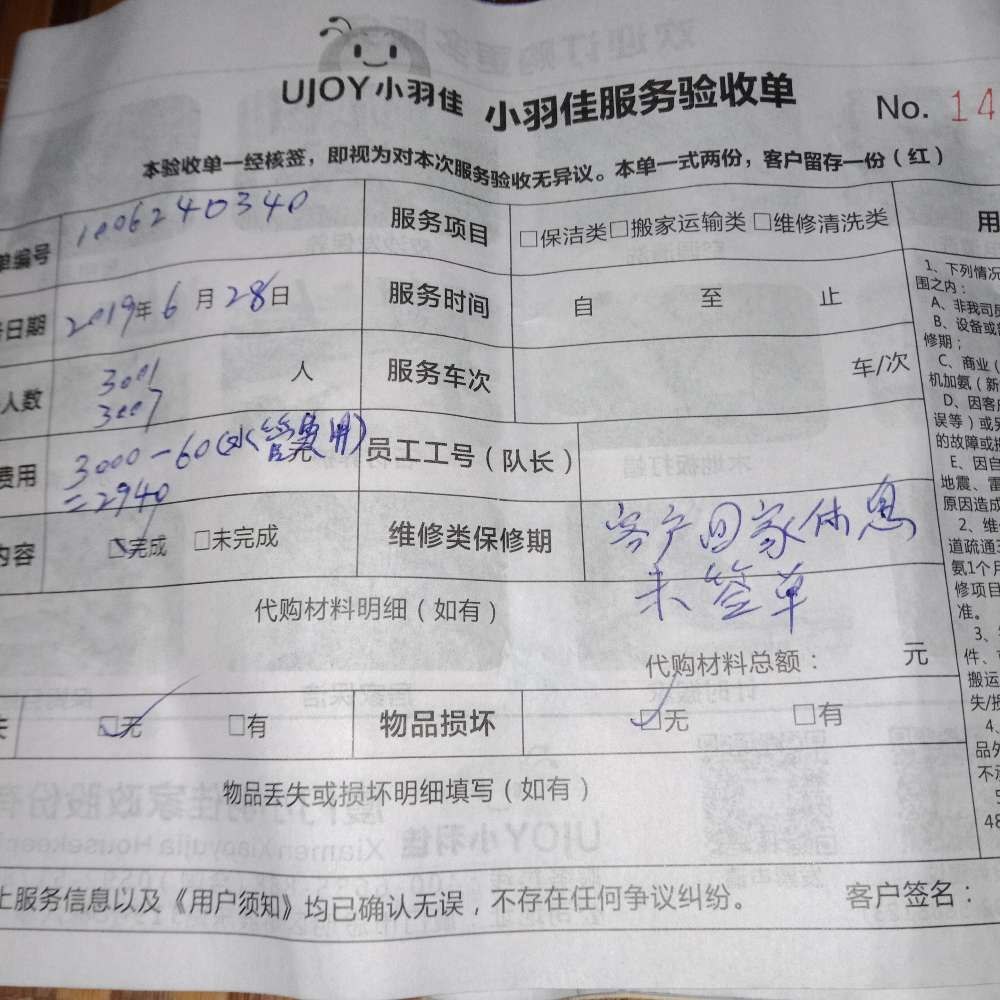 UJOY小羽佳 小羽佳服务验收单 No. 14
本验收单一经核签，即视为对本次服务验收无异议。本单一式两份，客户留存一份（红）
单编号 1006240340 服务项目 □保洁类□搬家运输类 □维修清洗类
日期 2019年6月28日 服务时间 自 至 止
人数 3001 3007 人 服务车次 车/次
费用 3000-60(水管费用) =2940 元 员工工号（队长）
内容 ☑完成 □未完成 维修类保修期 客户回家休息
未签草
代购材料明细（如有）
代购材料总额： 元
☑无 □有 物品损坏 ☑无 □有
物品丢失或损坏明细填写（如有）
上服务信息以及《用户须知》均已确认无误，不存在任何争议纠纷。 客户签名：
用
1、下列情况
围之内：
A、非我司员
B、设备或
修期；
C、商业（
机加氨（新
D、因客户
误等）或
的故障或
E、因自
地震、雷
原因造成
2、维
道疏通
氨1个月
修项目
准。
3、
件、
搬运
失/损
4、
品外
不
48